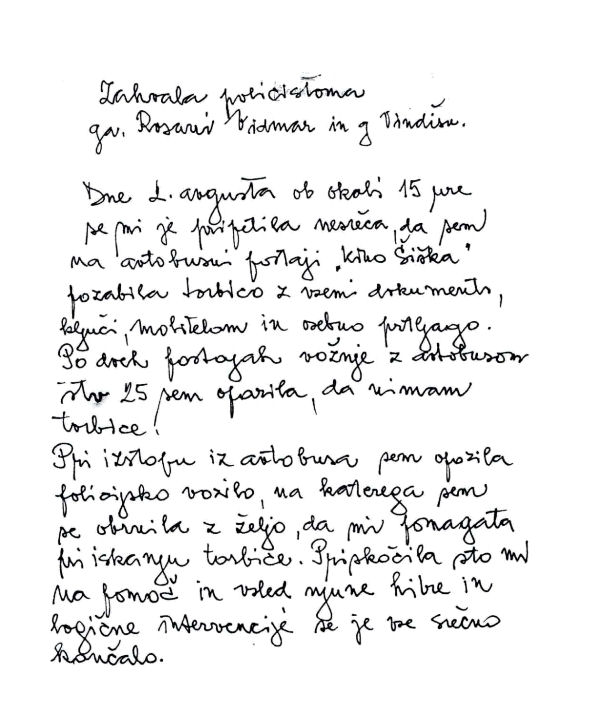 Zahvala policistoma
ga. Rosani Vidmar in g Vindišu.
Dne 2. avgusta ob okoli 15 ure
se mi je pripetila nesreča, da sem
na avtobusni postaji "Kino Šiška"
pozabila torbico z vsemi dokumenti,
ključi, mobitelom in osebno prtljago.
Po dveh postajah vožnje z avtobusom
štv 25 sem opazila, da nimam
torbice!
Pri izstopu iz avtobusa sem opazila
policijsko vozilo, na katerega sem
se obrnila z željo, da mi pomagata
pri iskanju torbice. Priskočila sto mi
na pomoč in vsled njune hitre in
logične intervencije se je vse srečno
končalo.